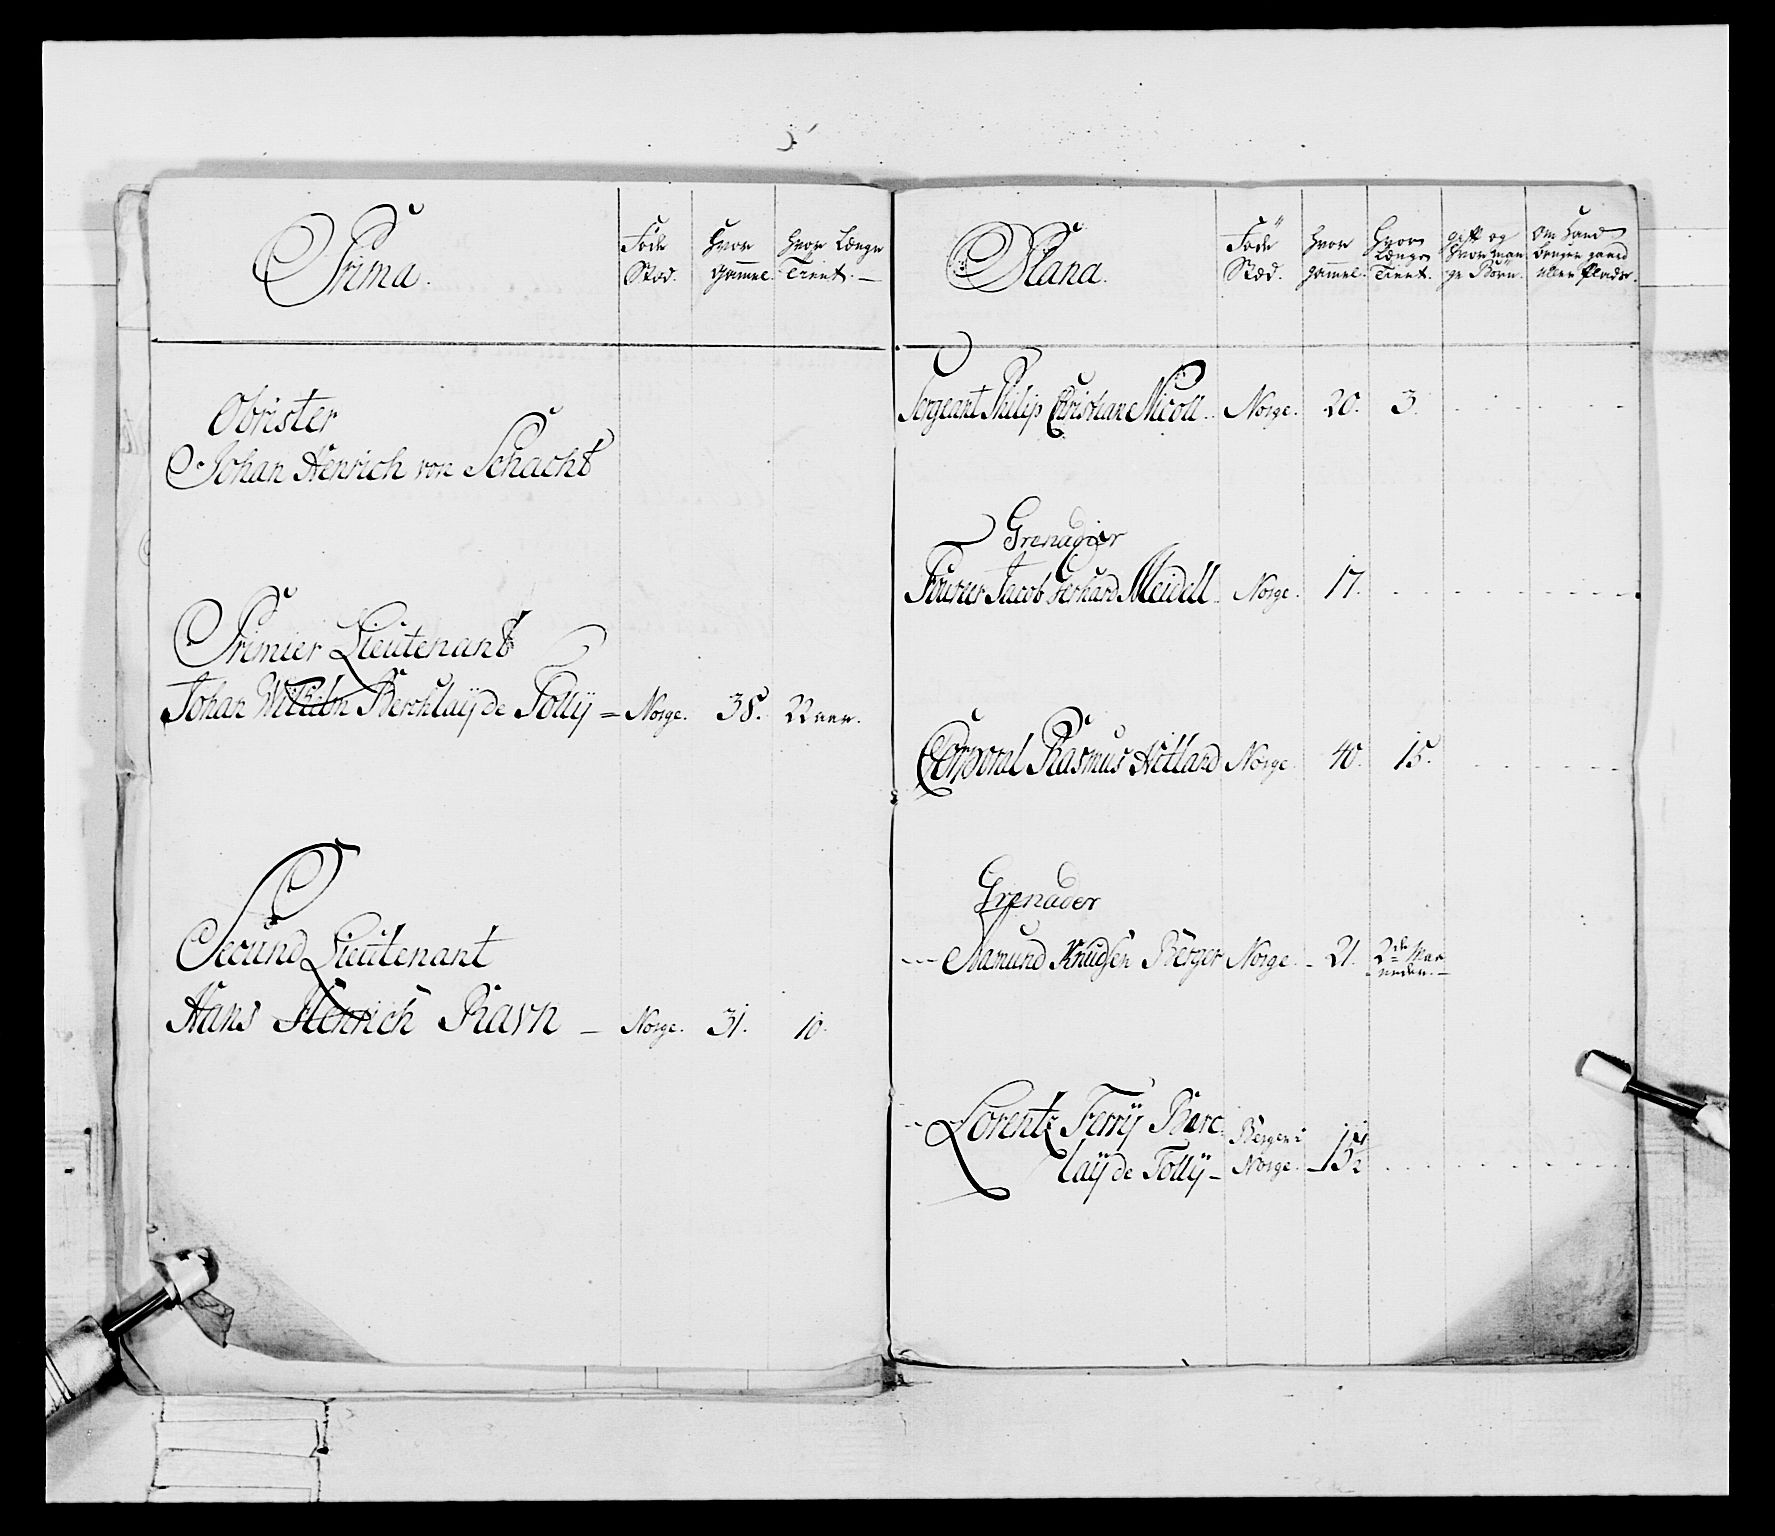 Prima.
Føde Stæd.
Hvor gammel.
Hvor Længe Tient. —
Obrister
Johan Henrich von Schacht
Primier Lieutenant
Johan Wilhelm Berchlaÿ de Tollÿ = Norge. 38. 22 aar.
Secund Lieutenant
Hans Henrich Ravn — Norge. 31. 10.
Plana.
Føde Stæd.
Hvor gammel.
Hvor Længe Tient.
gift og hvor mange Børn.
Om Hand bruger gaard eller Pladtz.
Sergeant Philip Christian Nicoll. Norge. 20. 3.
Grenadier
Fourer Jacob Gerhard Meidell. Norge. 17.
Corporal Rasmus Hetland Norge. 40. 15.
Grenader
Aamund Knudsen Berger Norge. – 21. 2de Maa
neder. —
Lorentz Ferrÿ Barc Bergen i
laÿ de Tollÿ – Norge. 13½